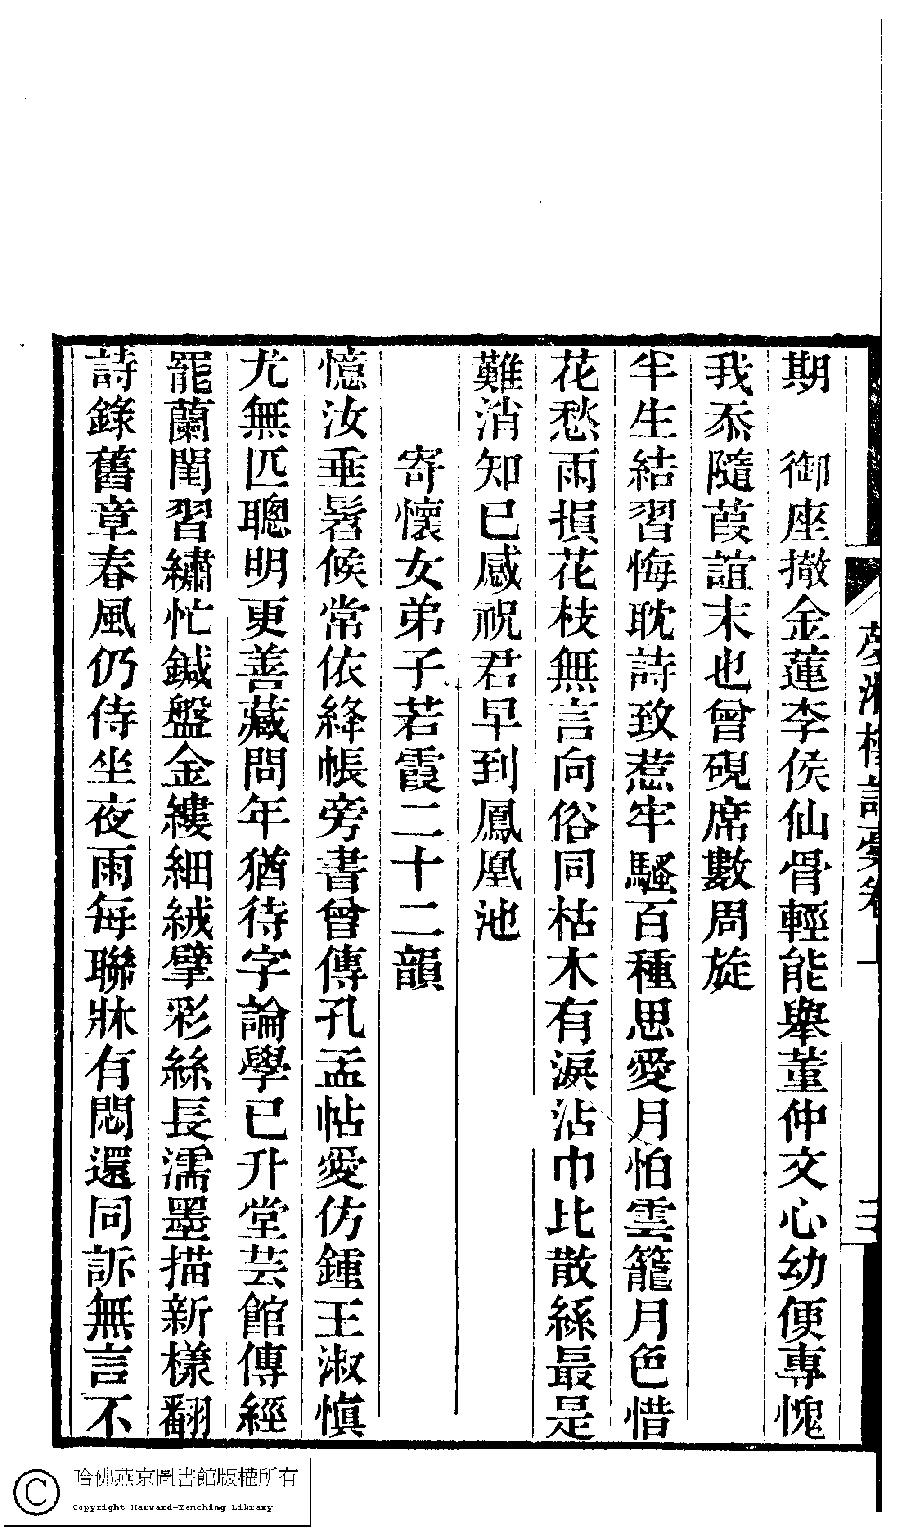 期　御座撤金蓮李侯仙骨輕能舉董仲文心幼便專愧
我忝隨葭誼末也曾硯席數周旋
半生結習悔耽詩致惹牢騷百種思愛月怕雲籠月色惜
花愁雨損花枝無言向俗同枯木有淚沾巾比散絲最是
難消知已感祝君早到鳳凰池
寄懷女弟子若霞二十二韻
憶汝垂髫候常依絳帳旁書曾傳孔孟帖愛仿鍾王淑慎
尤無匹聰明更善藏問年猶待字論學已升堂芸館傳經
罷蘭閨習繡忙鍼盤金縷細絨擘彩絲長濡墨描新樣翻
詩錄舊章春風仍侍坐夜雨每聯牀有悶還同訴無言不
夢湘樓詩稾卷一
三
哈佛燕京圖書館版權所有
Copyright Harvard-Yenching Library